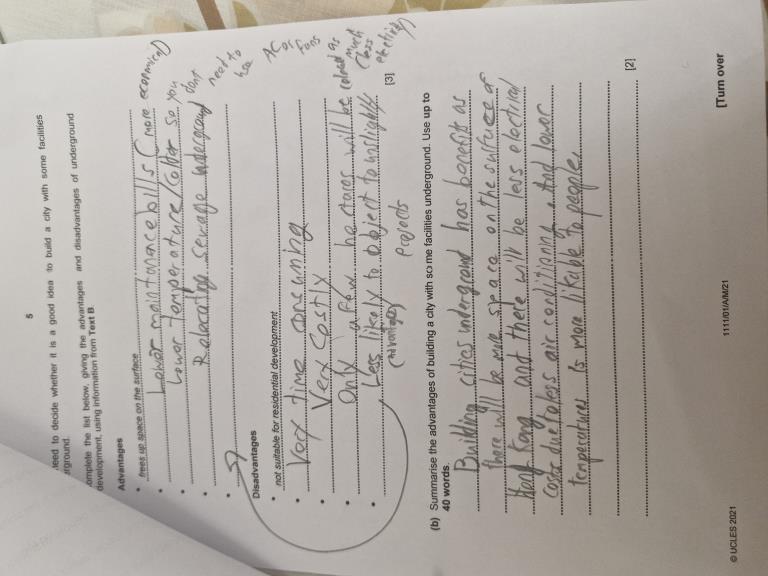 5
need to decide whether it is a good idea to build a city with some facilities
erground.
omplete the list below, giving the advantages and disadvantages of underground
development, using information from Text B.
Advantages
• frees up space on the surface
• Lower maintanace bills (more economical)
• Lower temperature/colder so you dont need to use AC or fans
• Relocating sewage underground
•
Disadvantages
• not suitable for residential development
• Very time consuming
• Very costly
• Only a few hectares will be
• Less likely to object to unslightly projects
(Advantage)
[3]
(b) Summarise the advantages of building a city with some facilities underground. Use up to
40 words.
Building cities underground has benefit as
there will be more space on the surface of
Hong Kong and there will be less electrical
costs due to less air conditioning. And lower
temperatures is more likable to people.
[2]
© UCLES 2021
1111/01/A/M/21
[Turn over